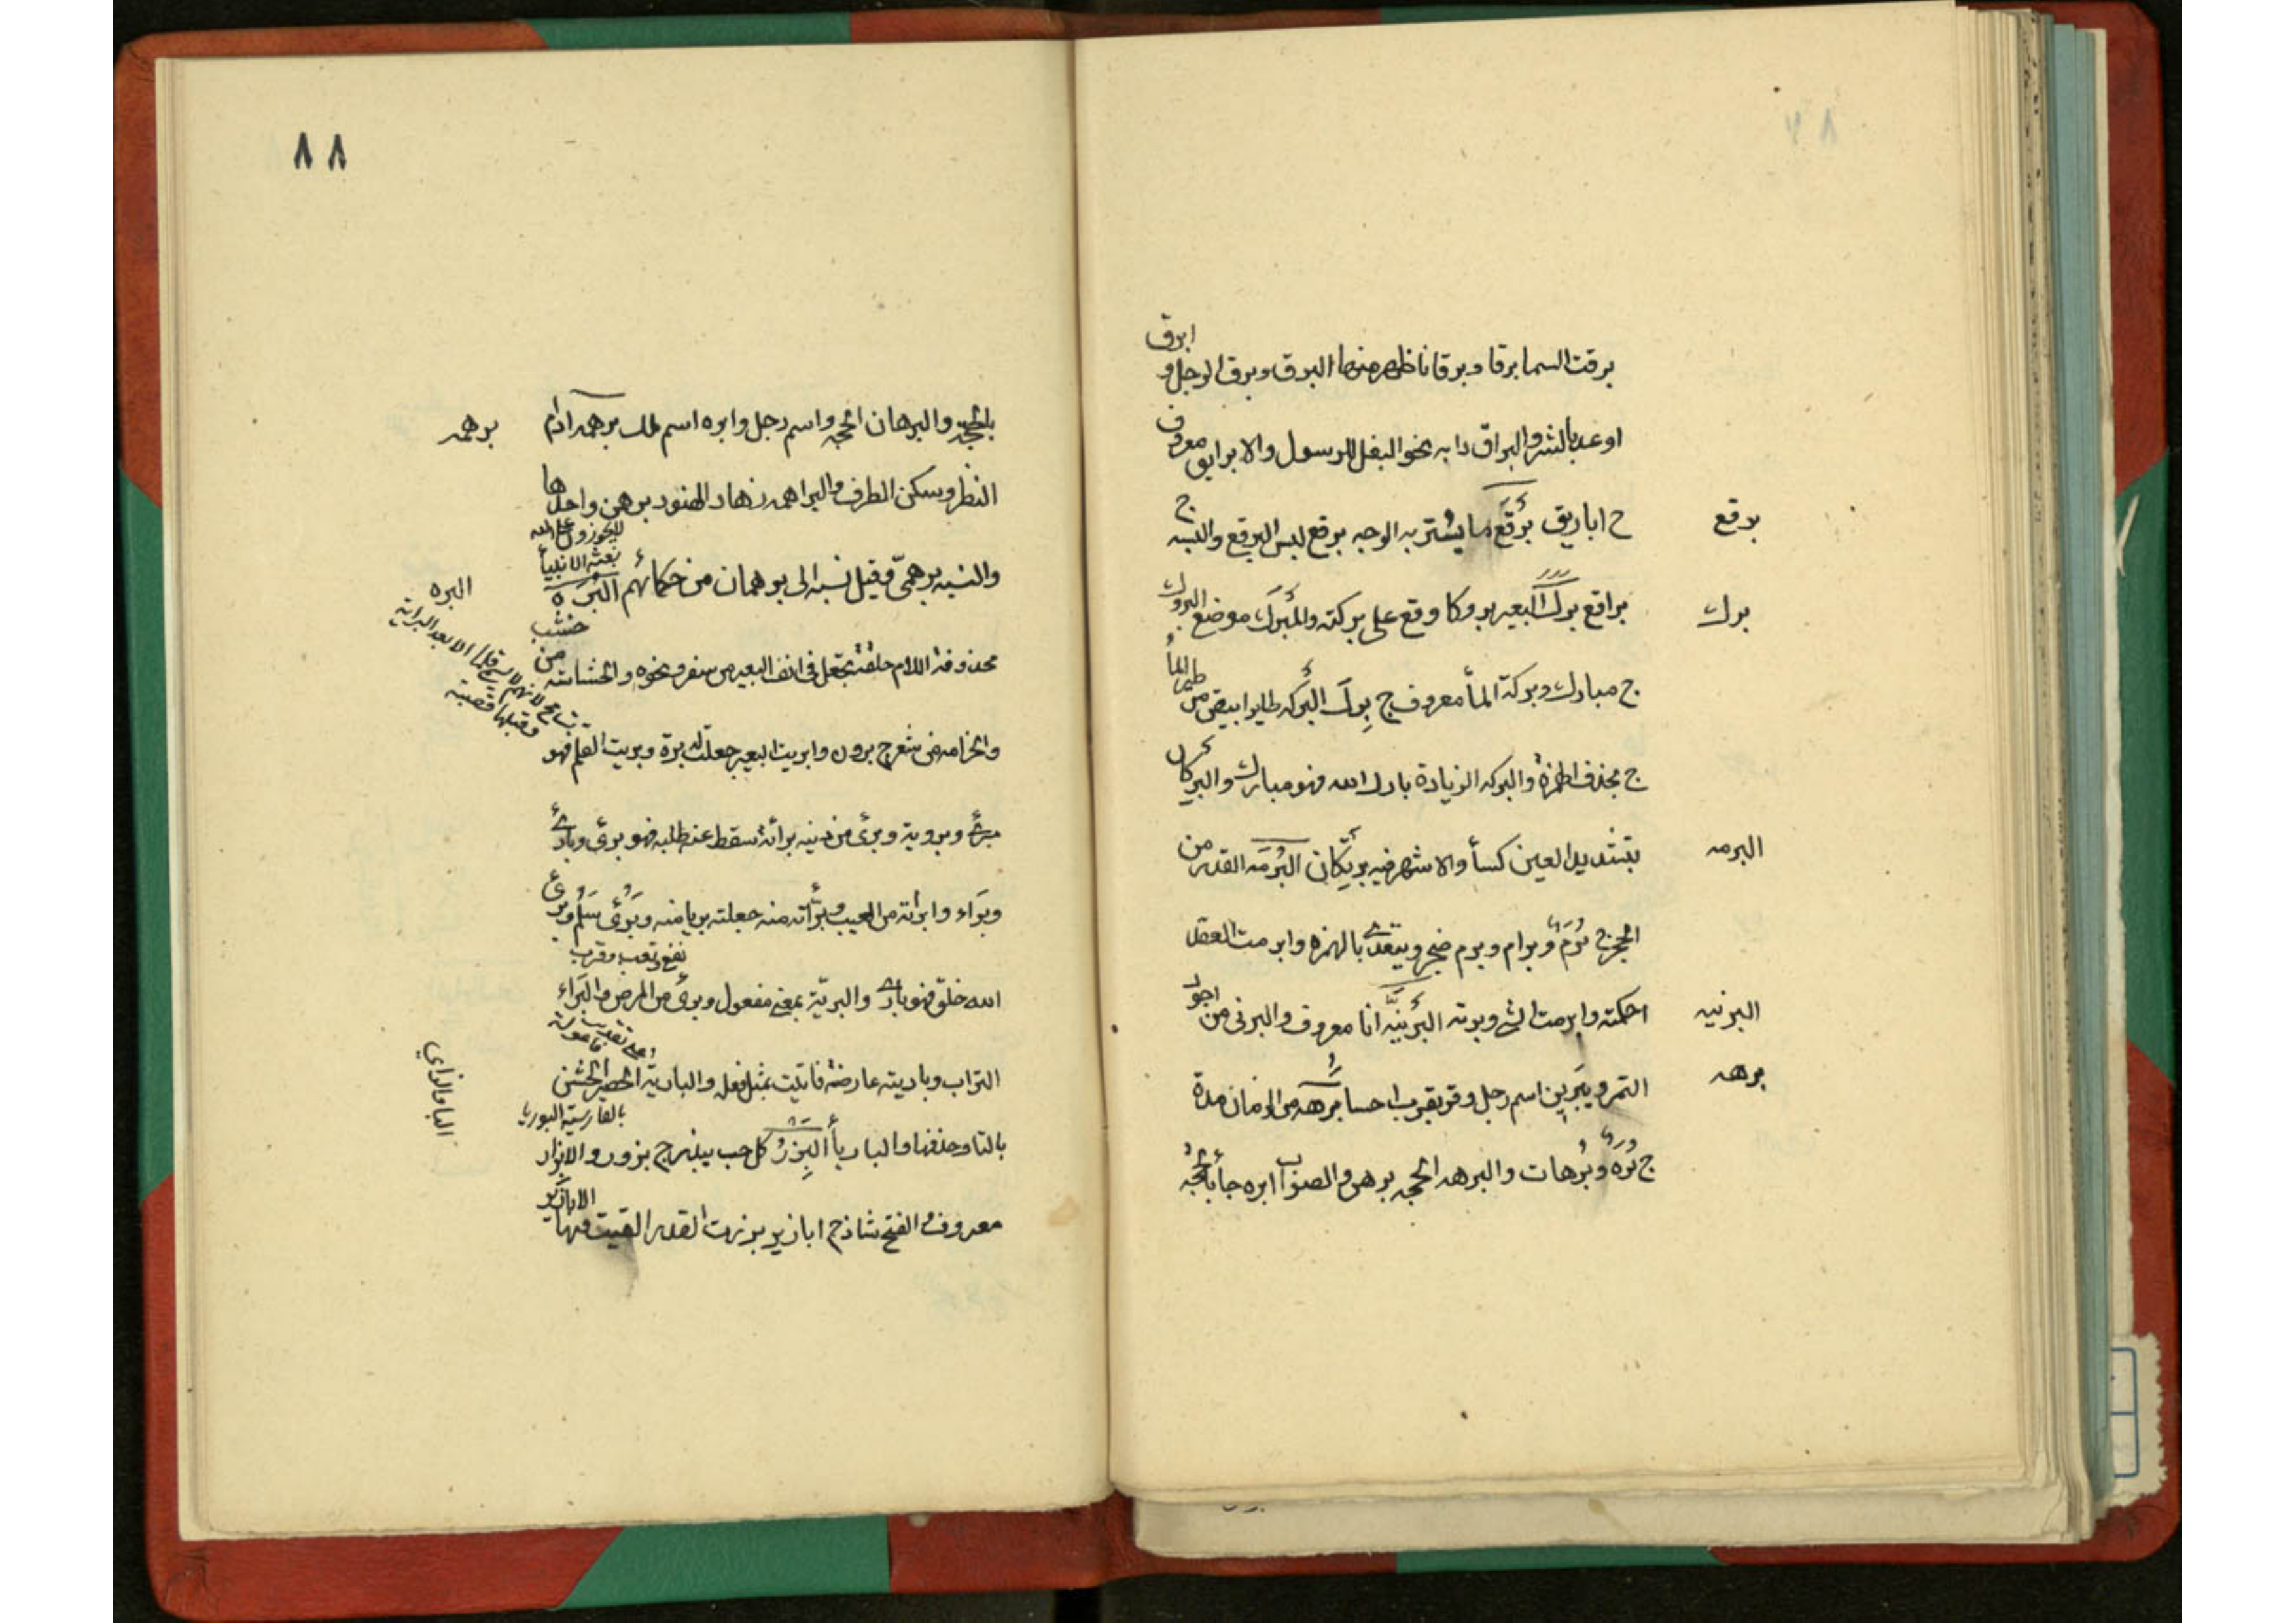 ابرق
برقت السما برقا وبرقانا ظهر منها البرق وبرق الرجل و
اوعد بالشر والبراق دابه نحو البغل للرسول والابرايق معروف
برقع
ج اباريق بُرقَع ما يستتر به الوجه برقع لبس البرقع والبسه
برك
براقع برك البعير بروكا وقع على بركته والمبرك موضع البروك
ج مبارك وبركة الماء معروف ج برك البركه طاير ابيض من طير الماء
ج بحذف الهمزة والبركه الزيادة بارك الله فهو مبارك والبركان
البرمه
بتشديد العين كسأ والاشهر فيه برنكان البرمه القدر من
الحجر ج برم وبرام وبرم ضجر ويتعدى بالهمزه وابرمت العقد
البرنيه
احكمته وابرمت الشي وبرته البرنيّه انا معروف والبرنى من اجود
برهه
التمر ويبرين اسم رجل وقريه بقرب احسا برهه من الزمان مدة
ج بُرَه وبُرهات والبرهه الحجه برهن والصواب ابره جأ بالحجة
٨٨
برهمه
بالحجة والبرهان الحجه واسم رجل وابره اسم ملك برهمه ادام
النظر وسكن الطرف والبراهمه زهاد الهنود برهمن واحدها
لا يجوزون على الله
بعثة الانبيأ
البره
والنسبه برهمىّ وقيل نسبه الى برهمان من حكمائهم البُرَة
محذوفة اللام حلقة تجعل فى انف البعير من صفر ونحوه والخشاشه من خشب
والخزامه من شعر ج برون وابريت البعير جعلت له برة وبريت القلم فهو
مبرى وبروية وبرئ من دينه برأة سقط عنه طلبه فهو برئ وبارئ
وبَرَاء وابرأته من العيب وبرّأته منه جعلته بريا منه وبرئ سلم وبرئ
نفع وتعب وقرب
الله خلق فهو بارئ والبريّة بمعنى مفعول وبرئ من المرض والبراء
التراب وباريته عارضته فاتيت بمثل فعله والبارية الحصير الخشن
بالفارسية البوريا
الباء والزاي
بالتا وحذفها والبارياء البِزَرُ كل حب يبذر ج بزور والابزار
معروف الفتح شاذ ج ابازير بزرت القدر القيت فيها الابازير